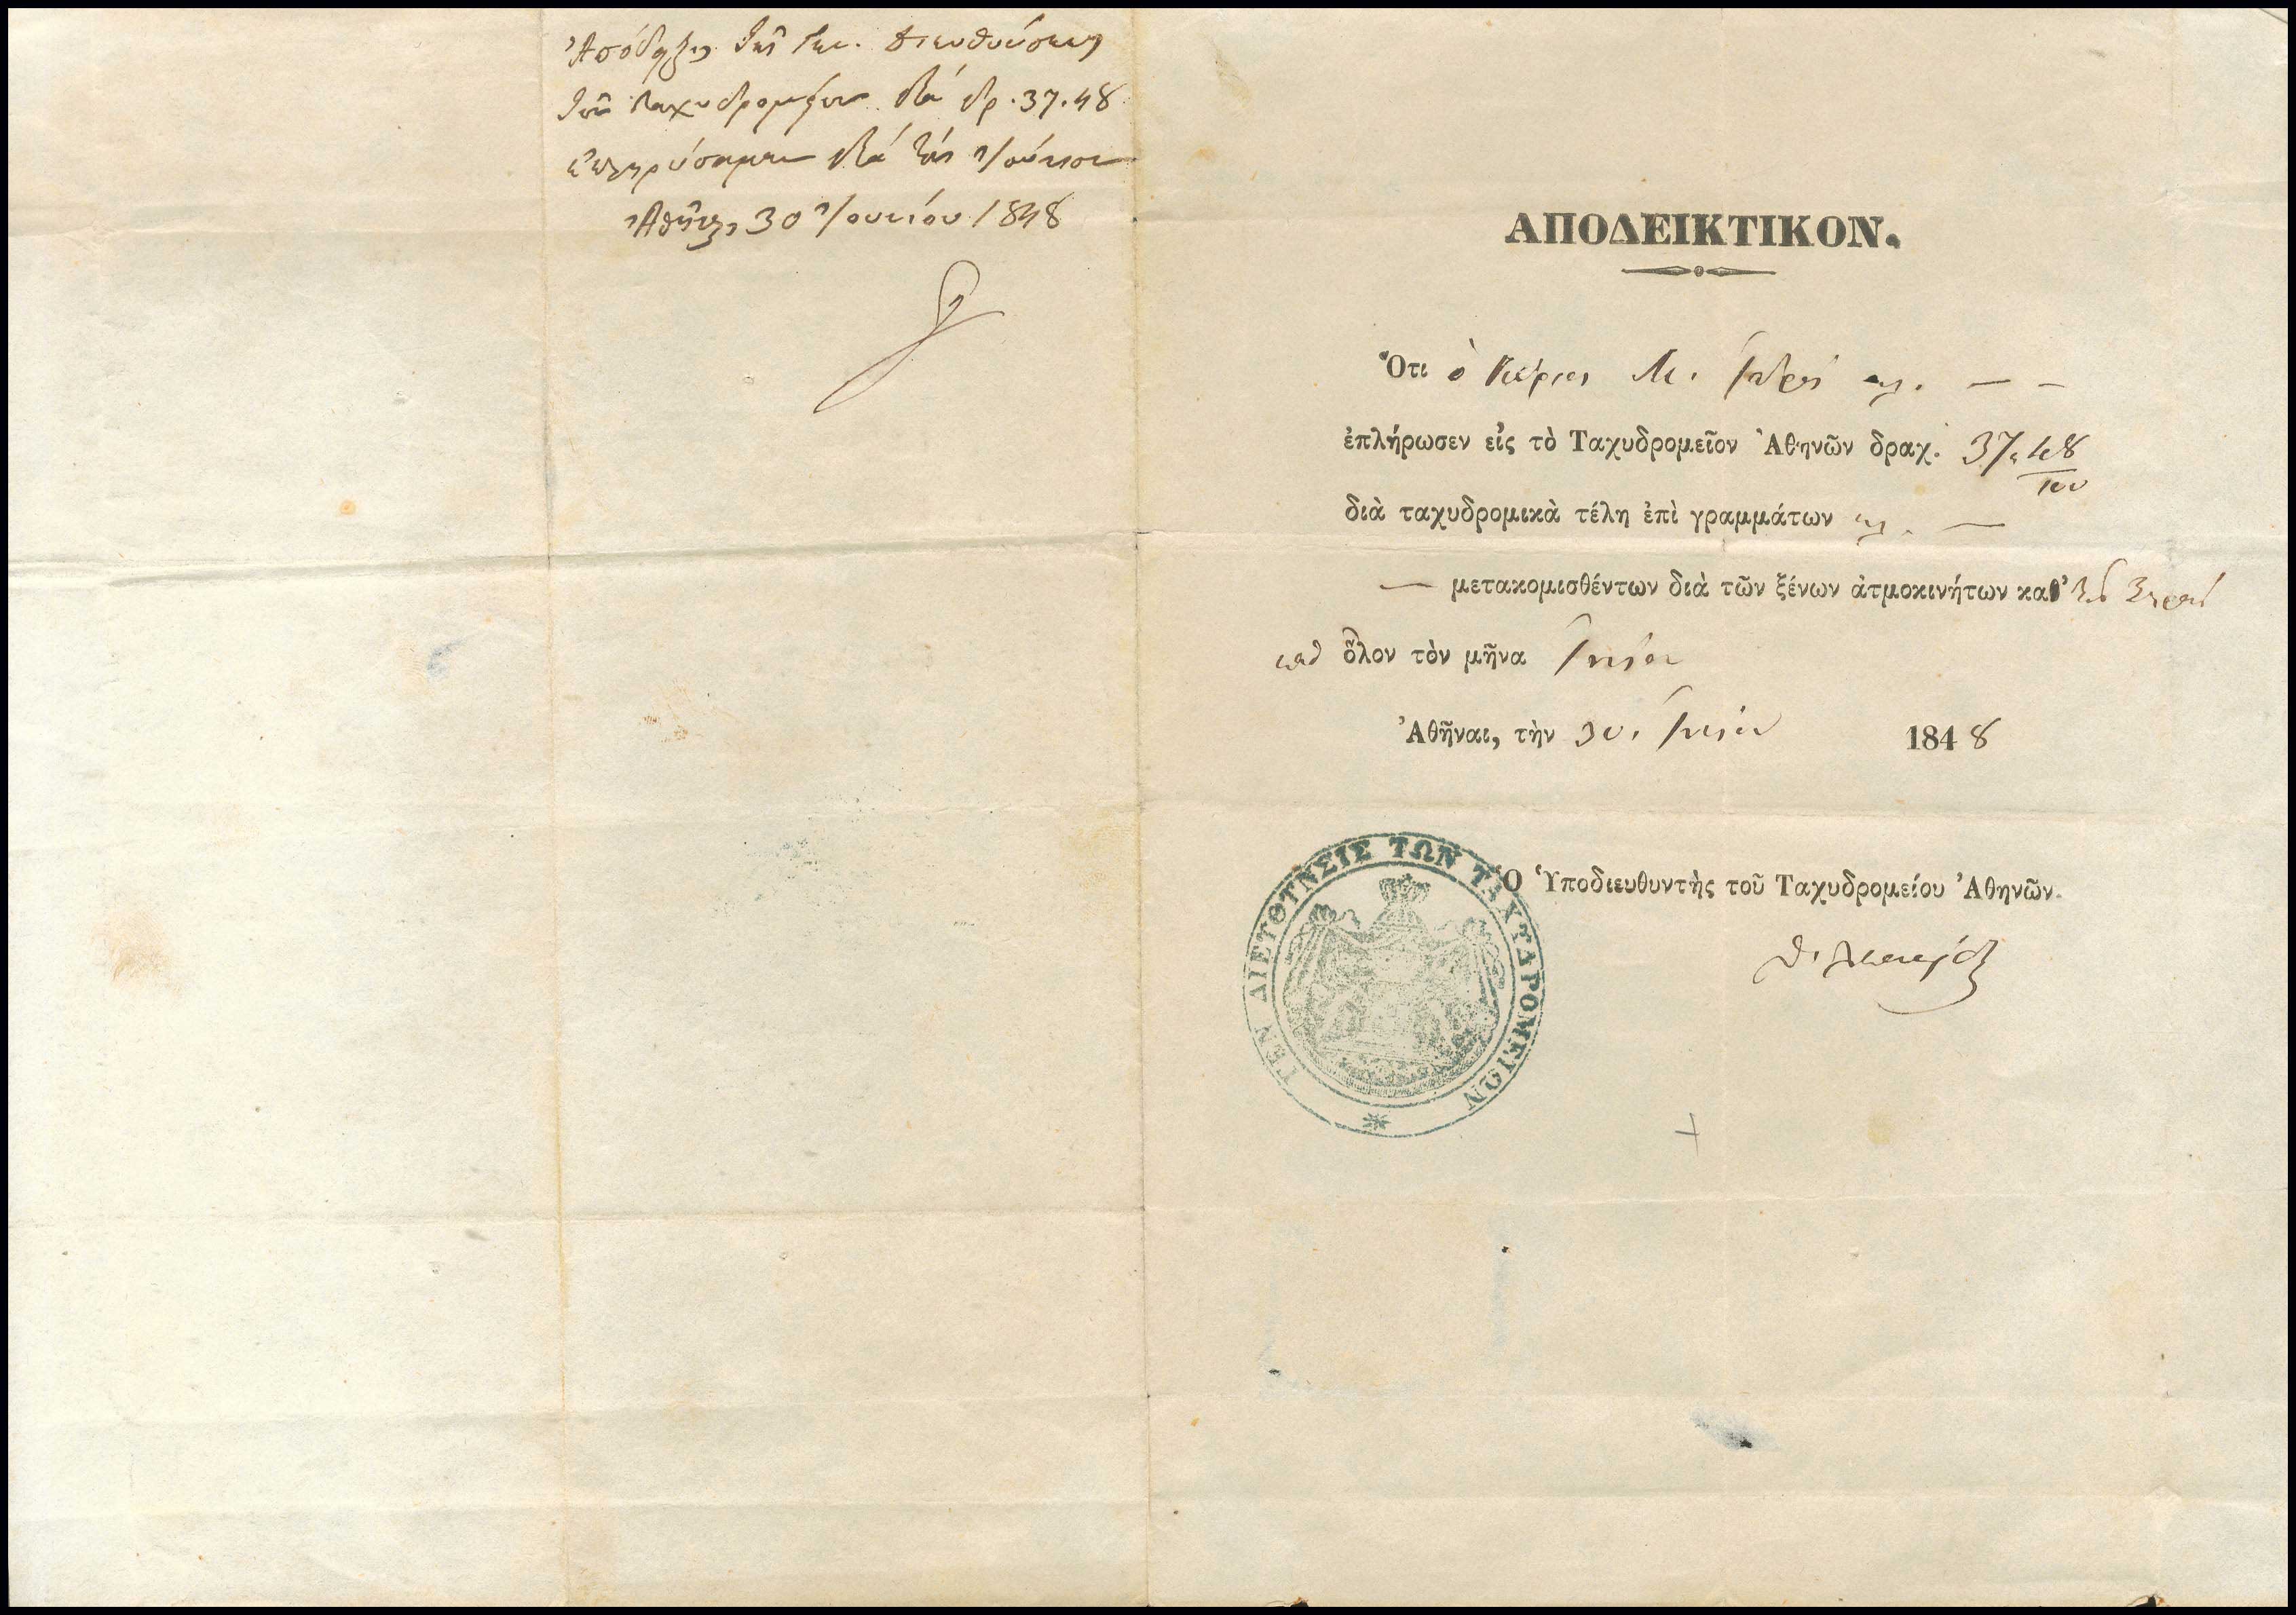 Ἀπόδειξις τῆς Γεν. Διευθύνσεως
τῶν Ταχυδρομείων διὰ δρ. 37.48
ἐπληρώσαμεν διὰ τὸν Ἰούνιον
Ἀθῆναι 30 Ἰουνίου 1848
ΑΠΟΔΕΙΚΤΙΚΟΝ.
Ὅτι ὁ Κύριος
ἐπλήρωσεν εἰς τὸ Ταχυδρομεῖον Ἀθηνῶν δραχ. 37,48/100
διὰ ταχυδρομικὰ τέλη ἐπὶ γραμμάτων
— μετακομισθέντων διὰ τῶν ξένων ἀτμοκινήτων καθ’
καθ ὅλον τὸν μῆνα Ἰούνιον
Ἀθῆναι, τὴν 30 Ἰουνίου 1848
Ὁ Ὑποδιευθυντὴς τοῦ Ταχυδρομείου Ἀθηνῶν.
ΓΕΝ ΔΙΕΥΘΥΝΣΙΣ ΤΩΝ ΤΑΧΥΔΡΟΜΕΙΩΝ